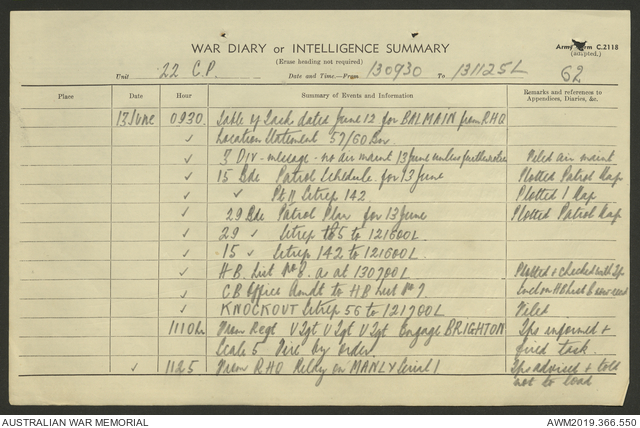 Army Form C.2118
(adapted.)
WAR DIARY or INTELLIGENCE SUMMARY
(Erase heading not required)
Unit 22 C.P. Date and Time.—From 130930 To 131125L 62
Place Date Hour Summary of Events and Information Remarks and references to Appendices, Diaries, &c.
13 June 0930. Table of Tasks dated June 12 for BALMAIN from RHQ
✓ Location Statement 57/60 Bn.
✓ 3 DIV - message - no air maint 13 June unless further advice Filed air maint
✓ 15 Bde Patrol Schedule for 13 June Plotted Patrol Map
✓ " Pt II Sitrep 142 Plotted 1 Map
✓ 29 Bde Patrol Plan for 13 June Plotted Patrol Map
✓ 29 " Sitrep 65 to 121600L.
✓ 15 " Sitrep 142 to 121600L.
✓ H.B List No 8. as at 130700L Plotted & checked with
✓ CB Office Amdt to HB List No 7
✓ KNOCKOUT Sitrep 56 to 121700L Filed
1110 hr From Regt V Tgt V Tgt V Tgt Engage BRIGHTON Tps informed &
Scale 5 Fire by order. fired task.
✓ 1125 From RHQ Relay on MANLY Serial 1 Tps advised & told
not to load
AUSTRALIAN WAR MEMORIAL
AWM2019.366.550